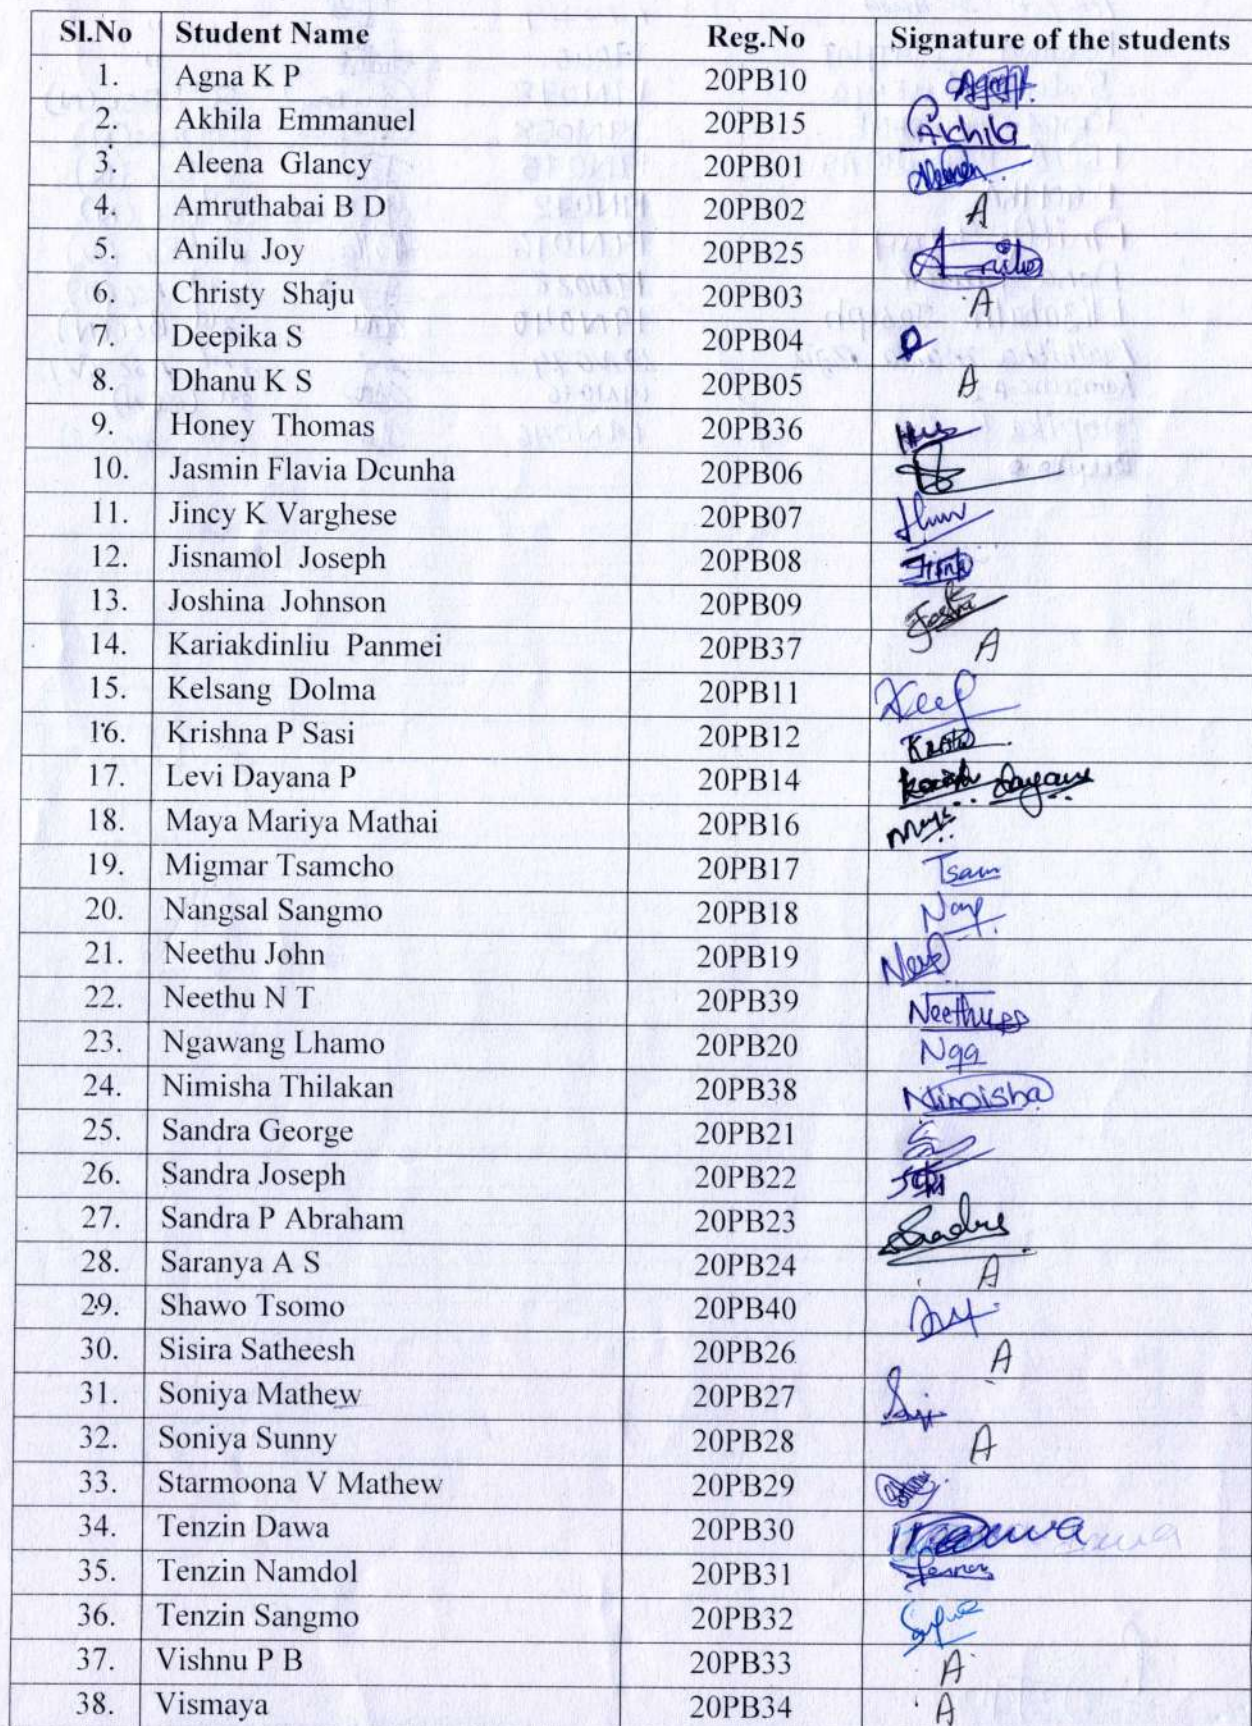 Sl.No Student Name Reg.No Signature of the students
1. Agna K P 20PB10
2. Akhila Emmanuel 20PB15 Akhila
3. Aleena Glancy 20PB01
4. Amruthabai B D 20PB02 A
5. Anilu Joy 20PB25
6. Christy Shaju 20PB03 A
7. Deepika S 20PB04
8. Dhanu K S 20PB05 A
9. Honey Thomas 20PB36
10. Jasmin Flavia Dcunha 20PB06
11. Jincy K Varghese 20PB07
12. Jisnamol Joseph 20PB08
13. Joshina Johnson 20PB09
14. Kariakdinliu Panmei 20PB37 A
15. Kelsang Dolma 20PB11
16. Krishna P Sasi 20PB12
17. Levi Dayana P 20PB14
18. Maya Mariya Mathai 20PB16
19. Migmar Tsamcho 20PB17 Tsam
20. Nangsal Sangmo 20PB18
21. Neethu John 20PB19
22. Neethu N T 20PB39 Neethu
23. Ngawang Lhamo 20PB20 Nga
24. Nimisha Thilakan 20PB38 Nimisha
25. Sandra George 20PB21
26. Sandra Joseph 20PB22
27. Sandra P Abraham 20PB23
28. Saranya A S 20PB24 A
29. Shawo Tsomo 20PB40
30. Sisira Satheesh 20PB26 A
31. Soniya Mathew 20PB27
32. Soniya Sunny 20PB28 A
33. Starmoona V Mathew 20PB29
34. Tenzin Dawa 20PB30
35. Tenzin Namdol 20PB31
36. Tenzin Sangmo 20PB32
37. Vishnu P B 20PB33 A
38. Vismaya 20PB34 A